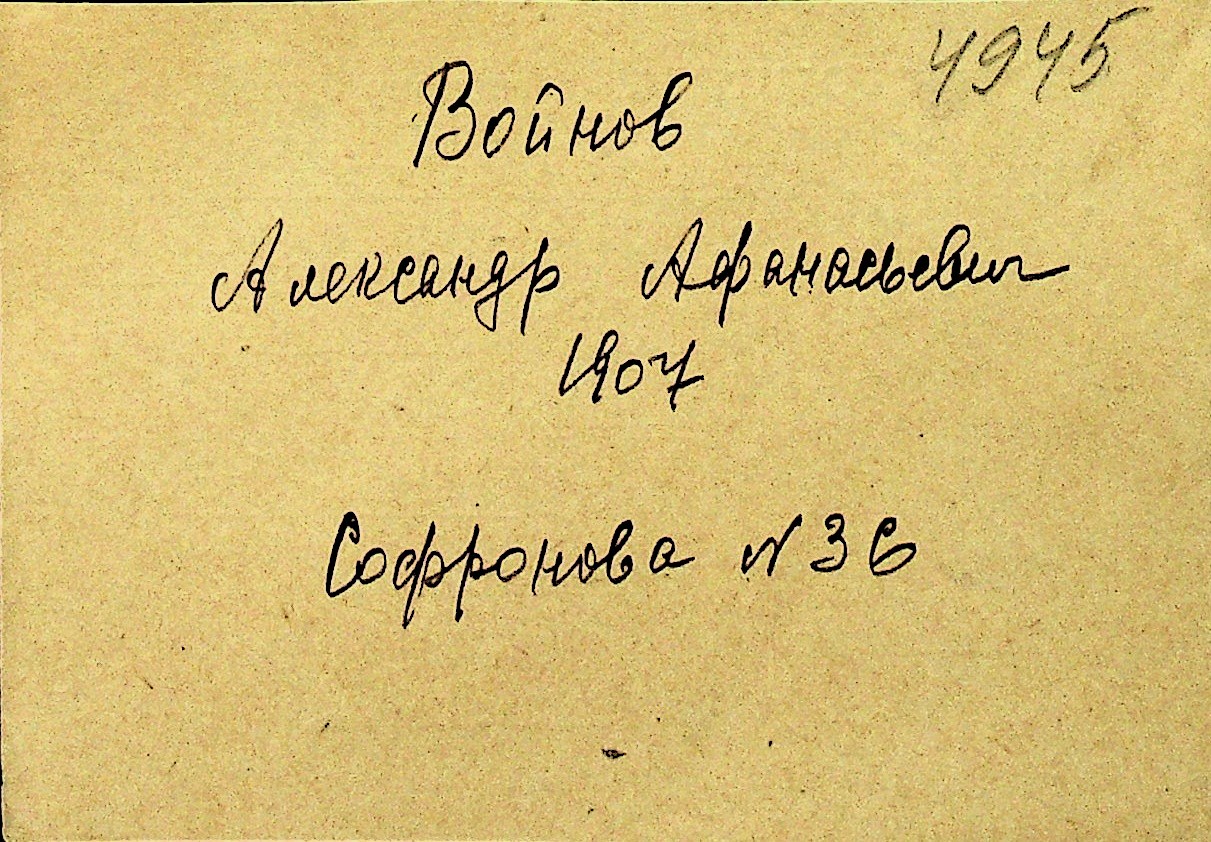 4945
Войнов
Александр Афанасьевич
1907
Софронова N 36